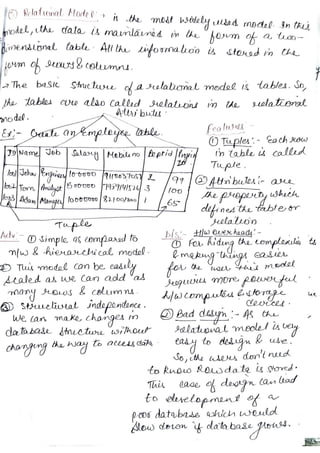 Relational Model :- is the most widely used model. In this
model, the data is maintained in the form of a two-
dimensional table. All the information is stored in the
form of rows & columns.
→ The basic structure of a relational model is tables. So,
the tables are also called relations in the relational
model.
Attributes
Ex:- Create an Employee table.
ID Name Job Salary Mobile no Dept id
John Engineer 100000 2 99
Tom Analyst 3 100
Manager 65
Tuple
Features
① Tuples:- Each row
in table is called
Tuple.
② Attributes:- are
the property which
defines the table or
relation
Adv:- ① Simple as compared to
n/w & hierarchical model.
② This model can be easily
scaled as we can add as
many rows & columns.
③ Structural independence.
We can make changes in
database structure without
changing the way to access data.
Dis:- H/w overheads:-
① For hiding the complexities
& making things easier
for the user this model
requires more powerful
H/w computers & storage
devices.
② Bad design:- As the
relational model is very
easy to design & use.
So, the users don't need
to know how data is stored.
This ease of design can lead
to development of a
poor database which would
slow down if database grows.